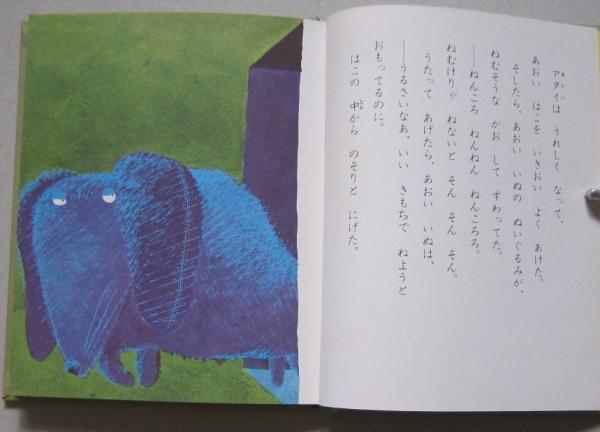 アタイは　うれしく　なって、
あおい　はこを　いきおい　よく　あけた。
そしたら、あおい　いぬの　ぬいぐるみが、
ねむそうな　かお　して　すわってた。
——ねんころ　ねんねん　ねんころろ。
ねむけりゃ　ねないと　そん　そん　そん。
うたって　あげたら、あおい　いぬは、
——うるさいなあ、いい　きもちで　ねようと
おもってるのに。
はこの　中から　のそりと　にげた。